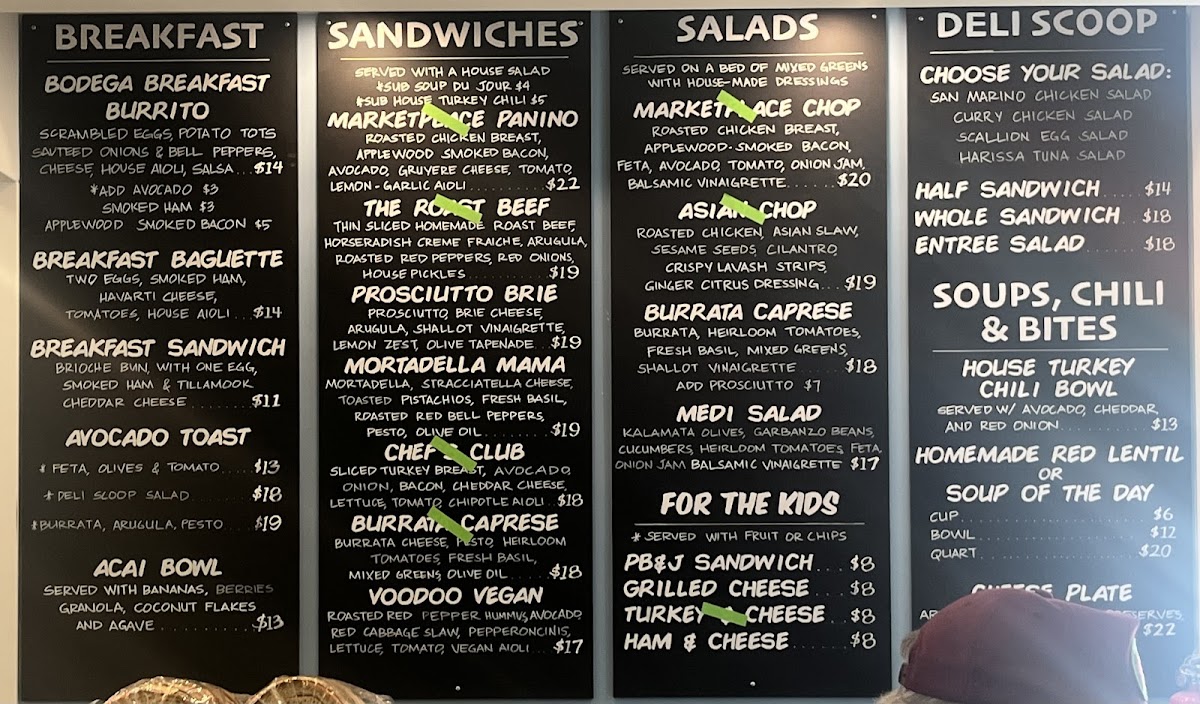 BREAKFAST
BODEGA BREAKFAST
BURRITO
SCRAMBLED EGGS, POTATO TOTS
SAUTEED ONIONS & BELL PEPPERS,
CHEESE, HOUSE AIOLI, SALSA...$14
*ADD AVOCADO $3
SMOKED HAM $3
APPLEWOOD SMOKED BACON $5
BREAKFAST BAGUETTE
TWO EGGS, SMOKED HAM,
HAVARTI CHEESE,
TOMATOES, HOUSE AIOLI...$14
BREAKFAST SANDWICH
BRIOCHE BUN, WITH ONE EGG,
SMOKED HAM & TILLAMOOK
CHEDDAR CHEESE........$11
AVOCADO TOAST
* FETA, OLIVES & TOMATO....$13
* DELI SCOOP SALAD........$18
*BURRATA, ARUGULA, PESTO....$19
ACAI BOWL
SERVED WITH BANANAS, BERRIES
GRANOLA, COCONUT FLAKES
AND AGAVE............$13
SANDWICHES
SERVED WITH A HOUSE SALAD
*SUB SOUP DU JOUR $4
*SUB HOUSE TURKEY CHILI $5
MARKETPLACE PANINO
ROASTED CHICKEN BREAST,
APPLEWOOD SMOKED BACON,
AVOCADO, GRUYERE CHEESE, TOMATO,
LEMON-GARLIC AIOLI..........$22
THE ROAST BEEF
THIN SLICED HOMEMADE ROAST BEEF,
HORSERADISH CREME FRAICHE, ARUGULA,
ROASTED RED PEPPERS, RED ONIONS,
HOUSE PICKLES..........$19
PROSCIUTTO BRIE
PROSCIUTTO, BRIE CHEESE,
ARUGULA, SHALLOT VINAIGRETTE,
LEMON ZEST, OLIVE TAPENADE..$19
MORTADELLA MAMA
MORTADELLA, STRACCIATELLA CHEESE,
TOASTED PISTACHIOS, FRESH BASIL,
ROASTED RED BELL PEPPERS,
PESTO, OLIVE OIL..........$19
CHEF'S CLUB
SLICED TURKEY BREAST, AVOCADO,
ONION, BACON, CHEDDAR CHEESE,
LETTUCE, TOMATO, CHIPOTLE AIOLI..$18
BURRATA CAPRESE
BURRATA CHEESE, PESTO, HEIRLOOM
TOMATOES, FRESH BASIL,
MIXED GREENS, OLIVE OIL......$18
VOODOO VEGAN
ROASTED RED PEPPER HUMMUS, AVOCADO,
RED CABBAGE SLAW, PEPPERONCINIS,
LETTUCE, TOMATO, VEGAN AIOLI...$17
SALADS
SERVED ON A BED OF MIXED GREENS
WITH HOUSE-MADE DRESSINGS
MARKETPLACE CHOP
ROASTED CHICKEN BREAST,
APPLEWOOD-SMOKED BACON,
FETA, AVOCADO, TOMATO, ONION JAM,
BALSAMIC VINAIGRETTE.......$20
ASIAN CHOP
ROASTED CHICKEN, ASIAN SLAW,
SESAME SEEDS, CILANTRO,
CRISPY LAVASH STRIPS,
GINGER CITRUS DRESSING....$19
BURRATA CAPRESE
BURRATA, HEIRLOOM TOMATOES,
FRESH BASIL, MIXED GREENS,
SHALLOT VINAIGRETTE.......$18
ADD PROSCIUTTO $7
MEDI SALAD
KALAMATA OLIVES, GARBANZO BEANS,
CUCUMBERS, HEIRLOOM TOMATOES, FETA,
ONION JAM BALSAMIC VINAIGRETTE $17
FOR THE KIDS
* SERVED WITH FRUIT OR CHIPS
PB&J SANDWICH....$8
GRILLED CHEESE....$8
TURKEY & CHEESE...$8
HAM & CHEESE.......$8
DELI SCOOP
CHOOSE YOUR SALAD:
SAN MARINO CHICKEN SALAD
CURRY CHICKEN SALAD
SCALLION EGG SALAD
HARISSA TUNA SALAD
HALF SANDWICH.....$14
WHOLE SANDWICH..$18
ENTREE SALAD.......$18
SOUPS, CHILI
& BITES
HOUSE TURKEY
CHILI BOWL
SERVED W/ AVOCADO, CHEDDAR,
AND RED ONION..........$13
HOMEMADE RED LENTIL
OR
SOUP OF THE DAY
CUP......................$6
BOWL.....................$12
QUART....................$20
CHEESE PLATE
$22